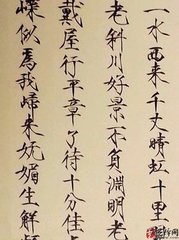 一水西来千丈晴虹十里
老斜川好景不負淵明老
戴屋行平章了待十分佳
嶸似爲我歸来妩媚生解